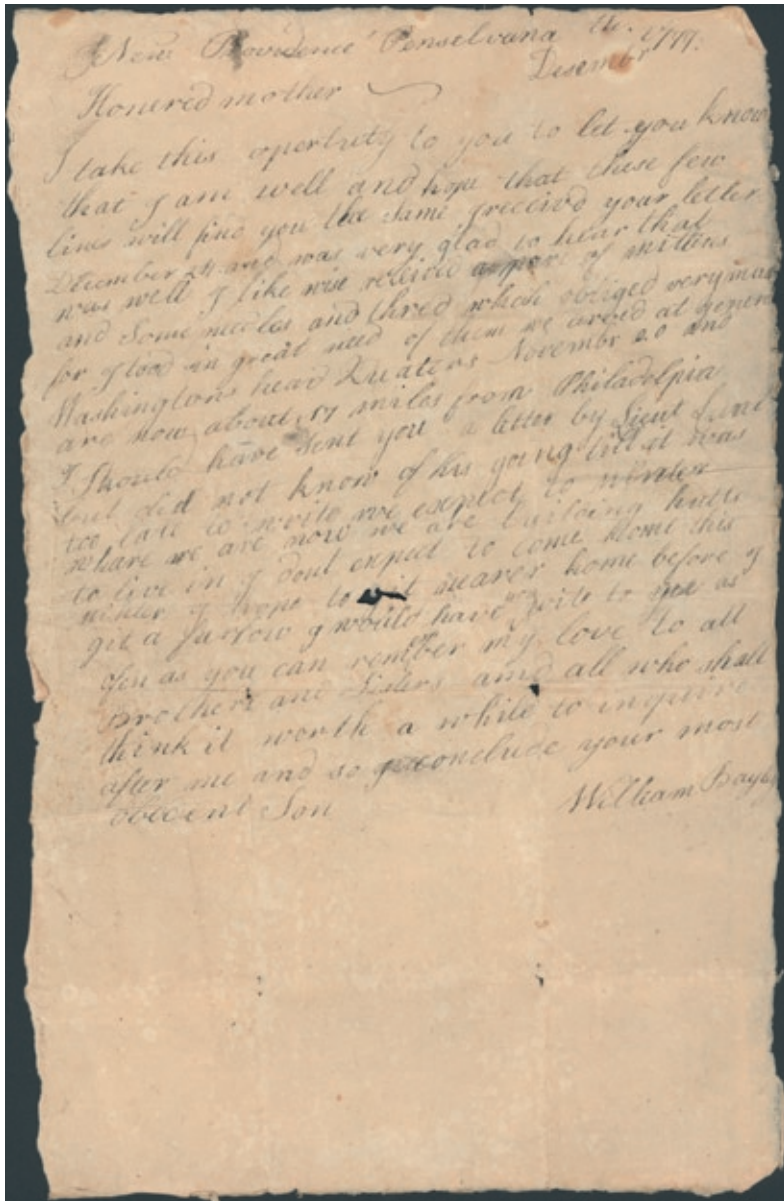 New Providence Penselvana the 1777.
Desembr
Honered mother
I take this opertuty to you to let you know
that I am well and hope that these few
lines will find you the Same I receivd your letter
December 24 and was very glad to hear that
was well I like wise receivd a pare of mittens
and Some needles and thred which obliged very much
for I tood in great need of them we arived at
Washingtons head Quaters Novembr 20 and
are now about 17 miles from Philadelpia
I Should have Sent you a letter by Lieut
but did not know of his going till it was
too late to write we expect to winter
whare we are now we are building hutts
to live in I dont expect to come home this
winter I hope to git nearer home before I
git a furlow I would have you write to me as
ofen as you can rember my love to all
Brothers and Sisters and all who shall
think it worth a while to inquire
after me and so I conclude your most
obedent Son
William Bayly